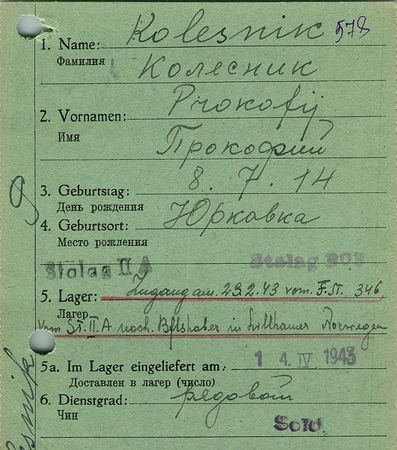 Kolesnik 578
1. Name:
Фамилия
Колесник
Prokofij
2. Vornamen:
Имя
Прокофий
3. Geburtstag: 8. 7. 14
День рождения
4. Geburtsort: Юрковка
Место рождения
Stalag II A Stalag 303
5. Lager: Zugang am 23.2.43 vom F.St. 346,
Лагерь
vom St. II A nach Bftshaber in Lillhamer Norwegen
5a. Im Lager eingeliefert am:
Доставлен в лагерь (число)
14. IV 1943
6. Dienstgrad: рядовой
Чин
Sold.